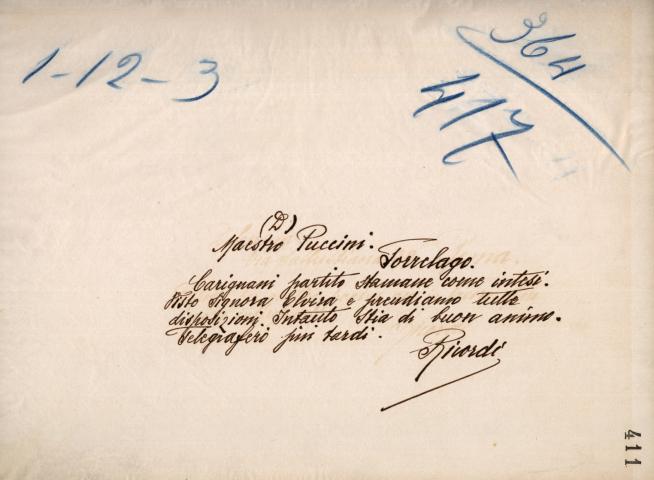 1-12-3
364
417
(D)
Maestro Puccini.
Torrelago.
Carignani partito stamane come intesi.
Visto Signora Elvira e prendiamo tutte
disposizioni. Intanto Stia di buon animo.
Telegraferò più tardi.
Ricordi
411